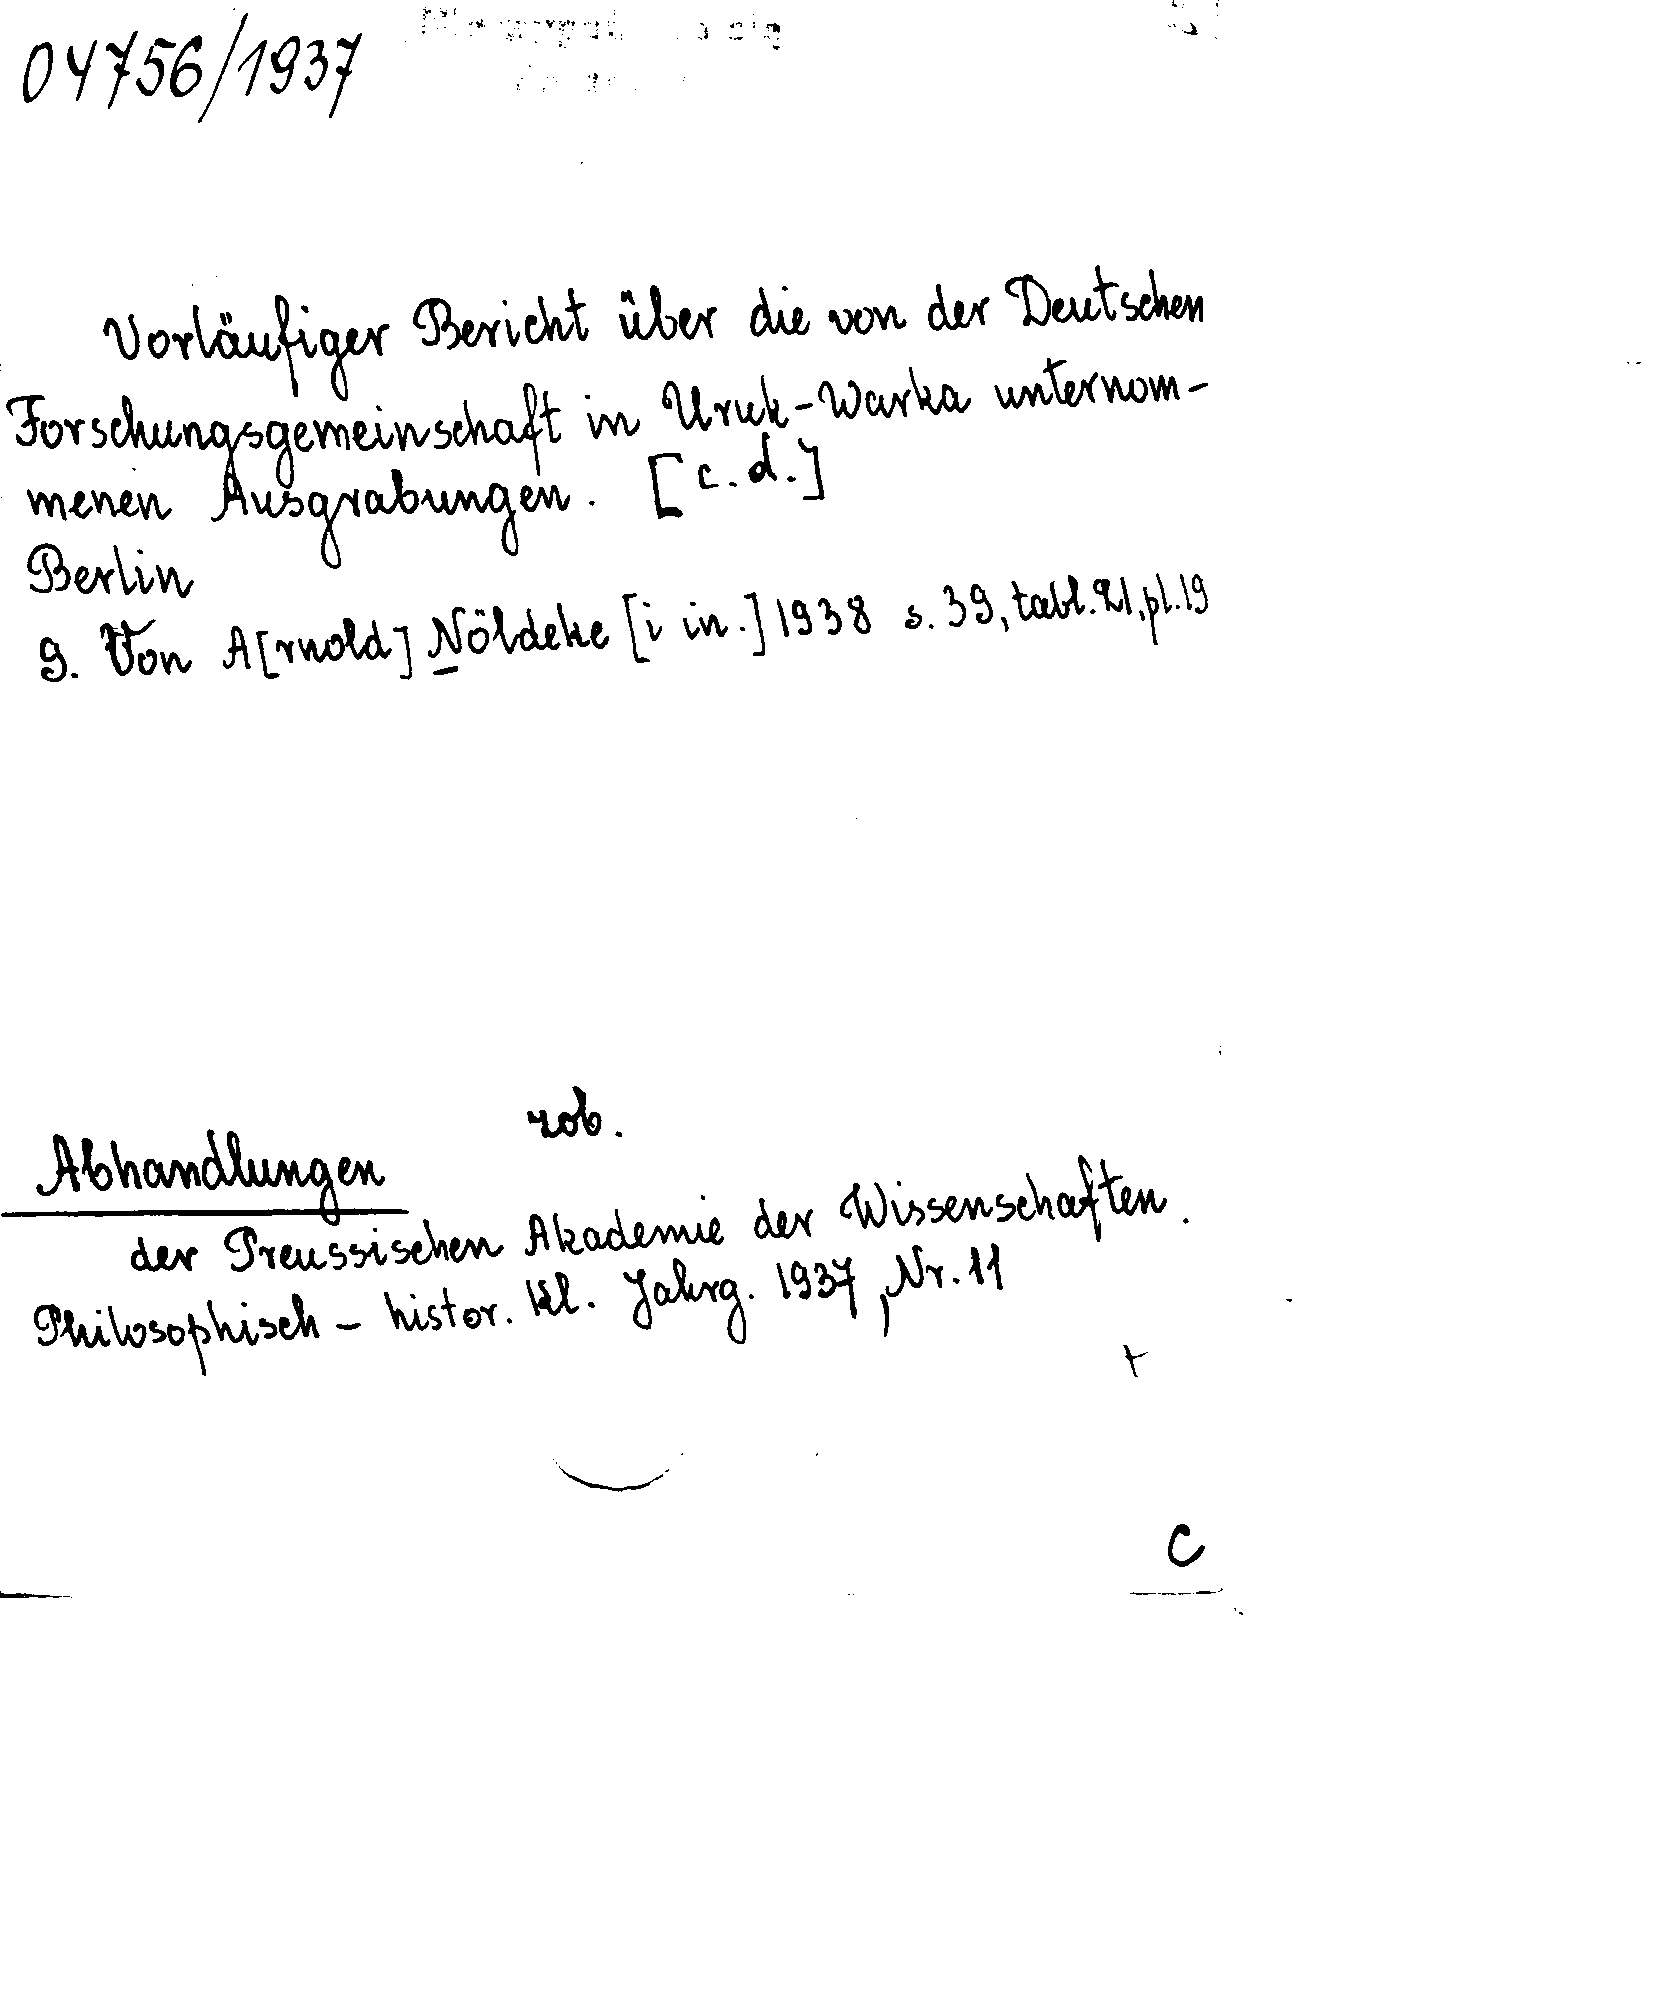 04756/1937
Vorläufiger Bericht über die von der Deutschen
Forschungsgemeinschaft in Uruk-Warka unternom-
menen Ausgrabungen. [c.d.]
Berlin
9. Von A[rnold] Nöldeke [i in.] 1938 s. 39, tabl. 21, pl. 19
zob.
Abhandlungen
der Preussischen Akademie der Wissenschaften.
Philosophisch - histor. Kl. Jahrg. 1937, Nr. 11
C